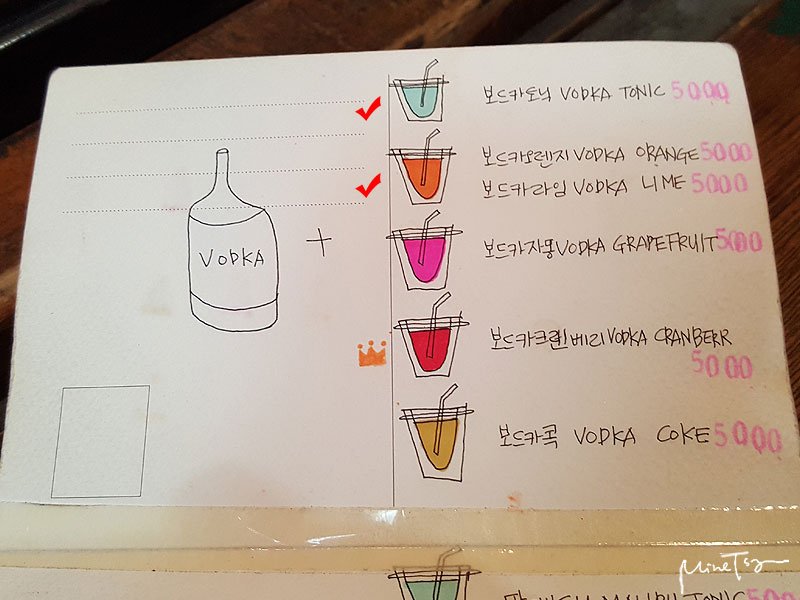 VODKA
+
보드카토닉 VODKA TONIC 5000
보드카오렌지 VODKA ORANGE 5000
보드카라임 VODKA LIME 5000
보드카자몽 VODKA GRAPEFRUIT 5000
보드카크랜베리 VODKA CRANBERR
5000
보드카콕 VODKA COKE 5000
MALIBU TONIC 500